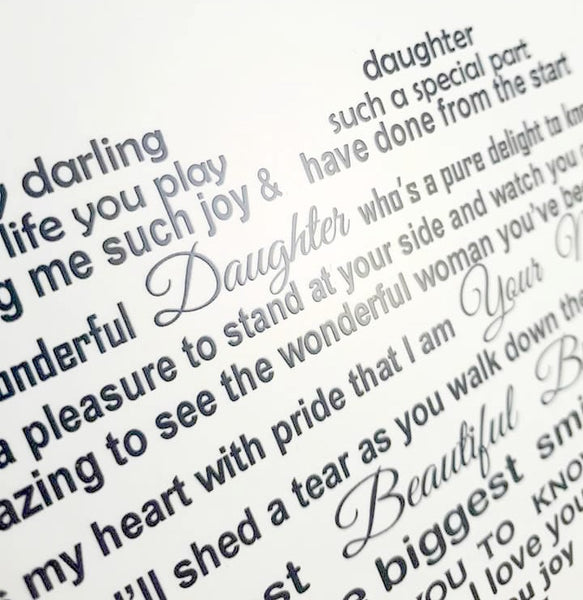 darling daughter
life you play such a special part
me such joy & have done from the start
Daughter who's a pure delight to
a pleasure to stand at your side and watch you
to see the wonderful woman you've
my heart with pride that I am Your
shed a tear as you walk down
Beautiful
biggest
TO
I love you
joy